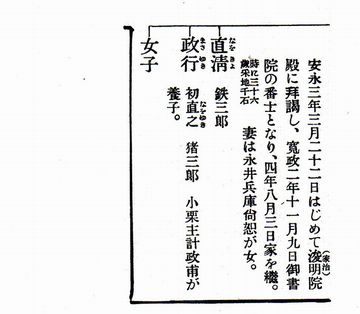 安永三年三月二十二日はじめて浚明院(家治)
殿に拝謁し、寛政二年十一月九日御書
院の番士となり、四年八月三日家を継。
時に三十六
歳采地千石
妻は永井兵庫尙恕が女。
直淸 なをきよ 鉄三郎
政行 まさゆき 初直之 なをゆき 猪三郎 小栗主計政甫が
養子。
女子